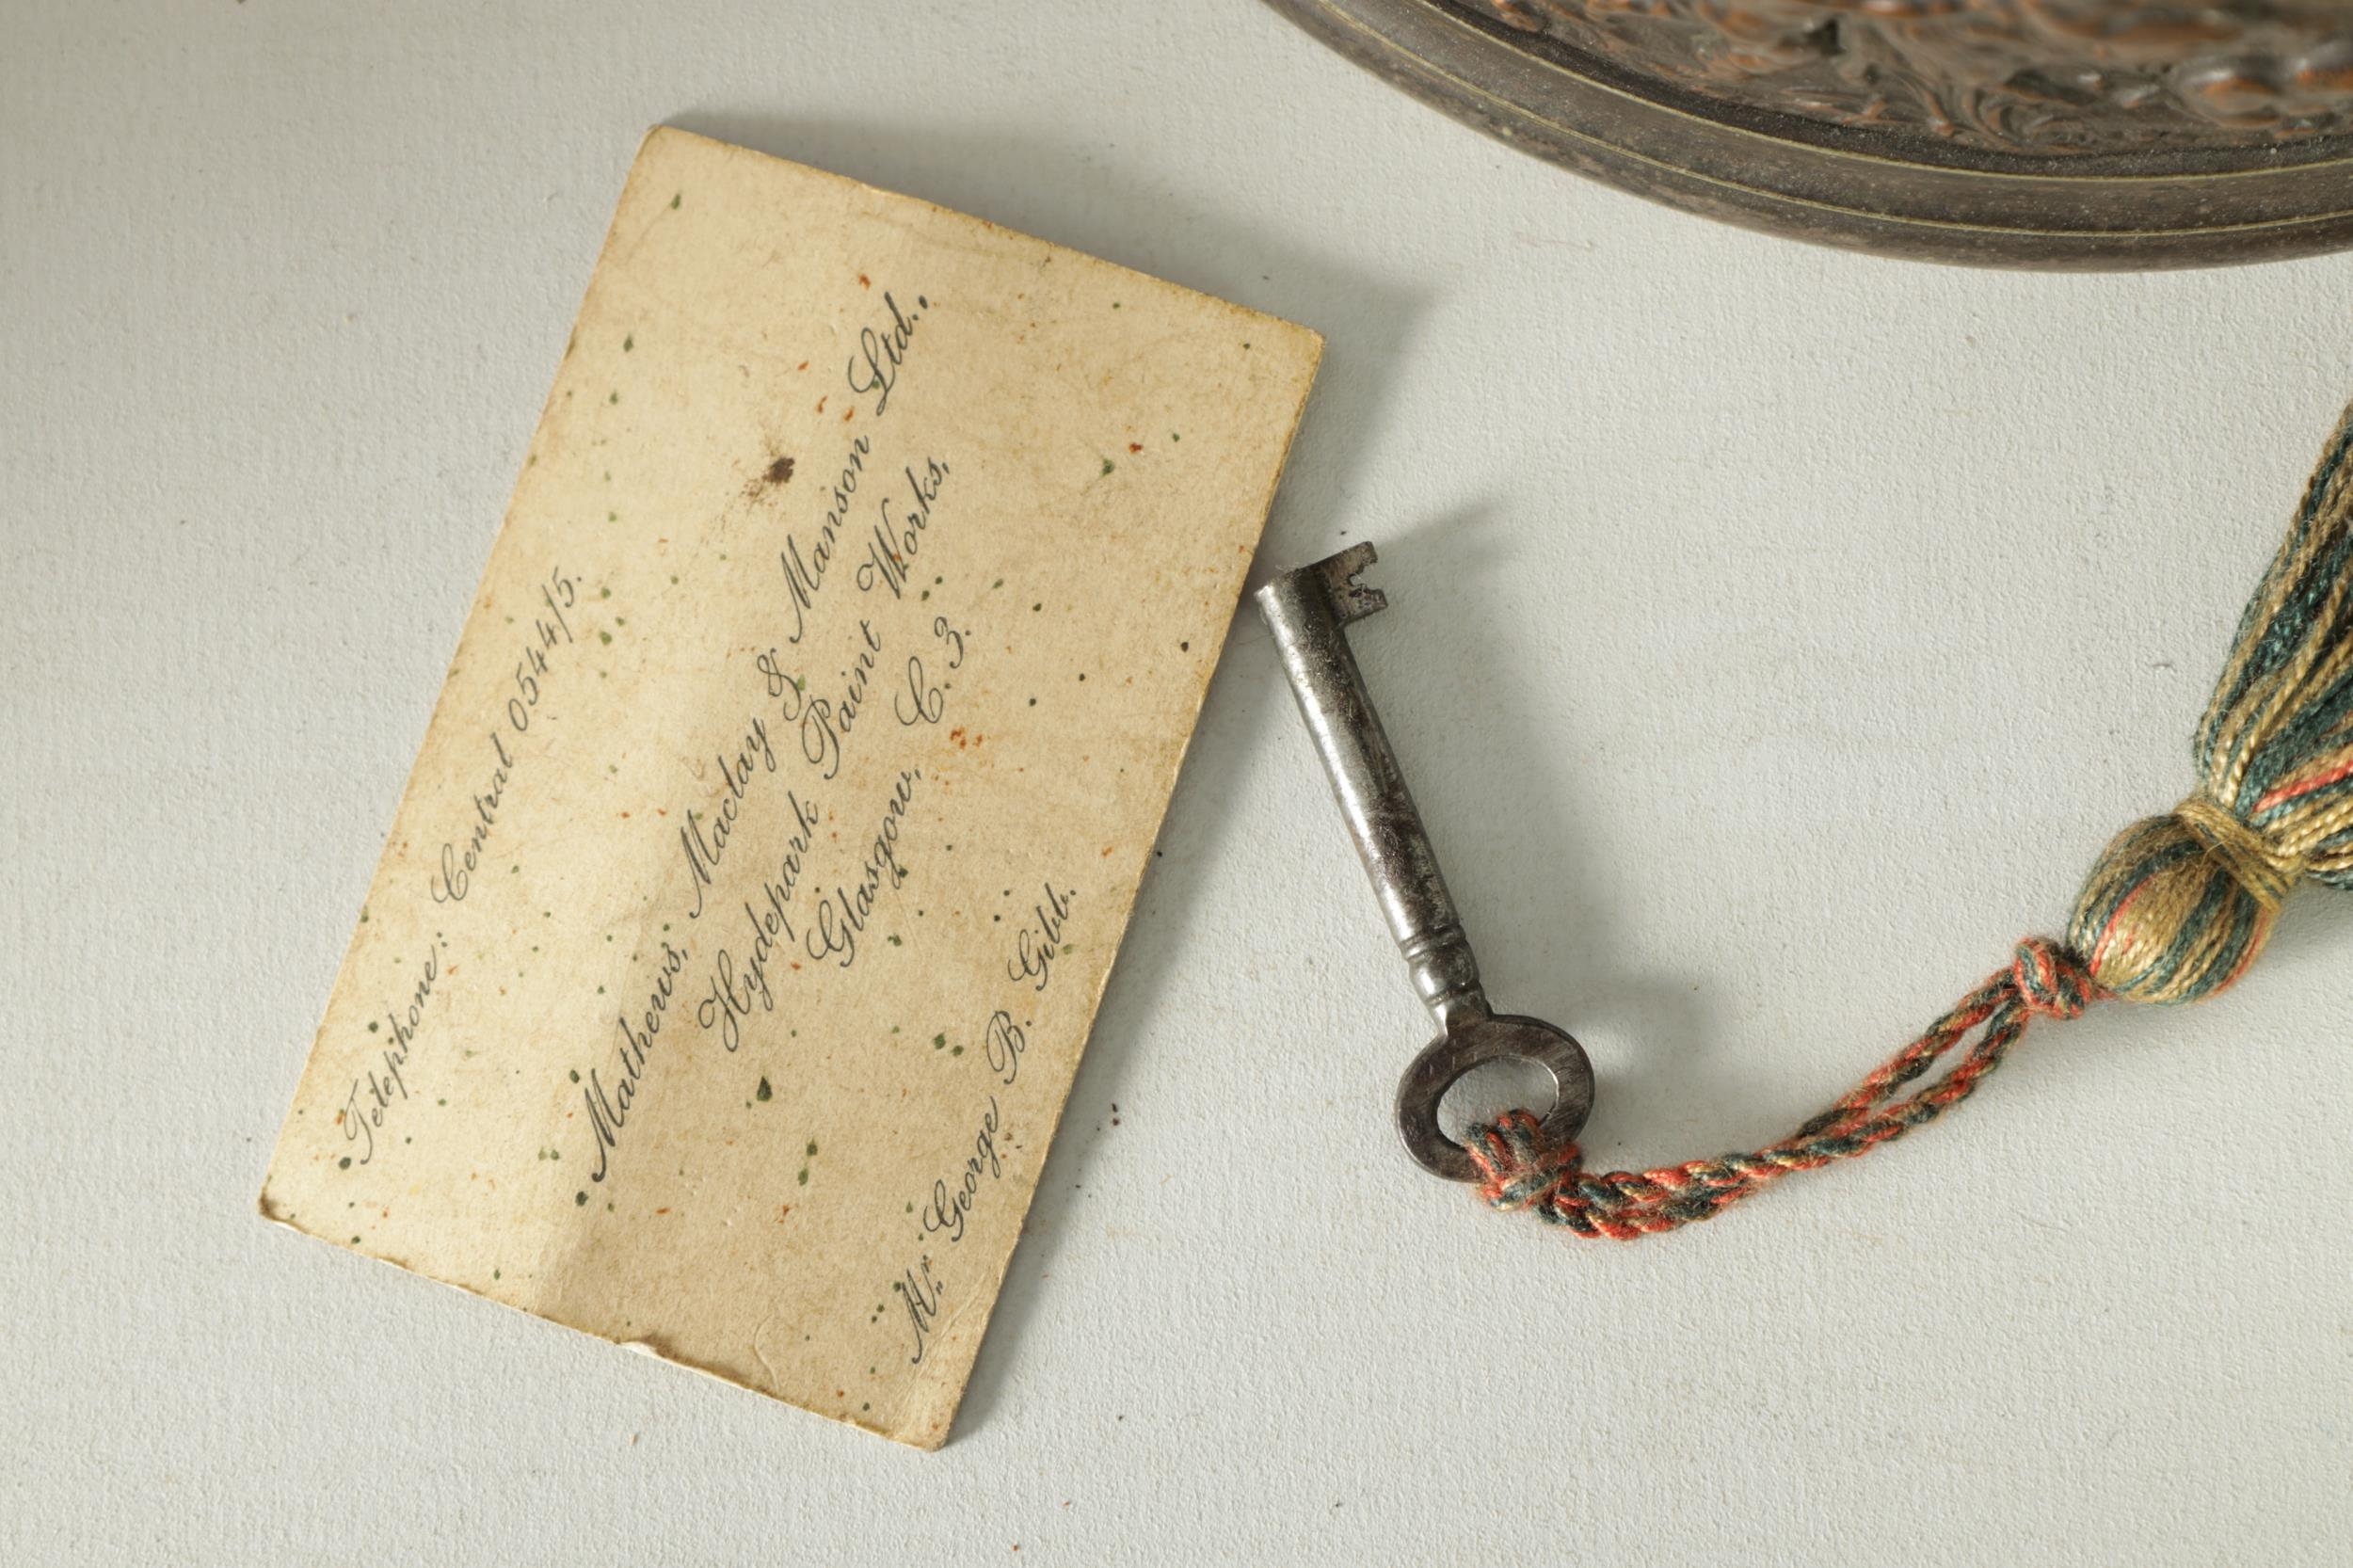 Telephone: Central 0544/5.
Mathews, Maclay & Manson Ltd.,
Hydepark Paint Works,
Glasgow, C. 3.
Mr. George B. Gibb.